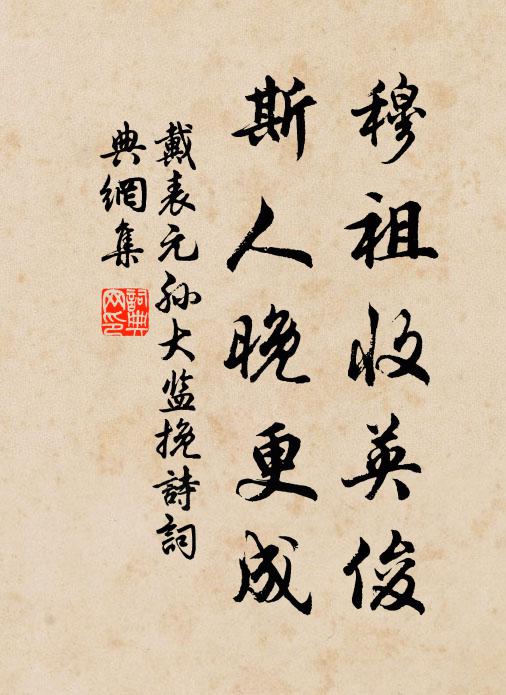 穆祖收英俊
斯人晚更成
戴表元孙大监挽詩詞
典網集
詞典网印